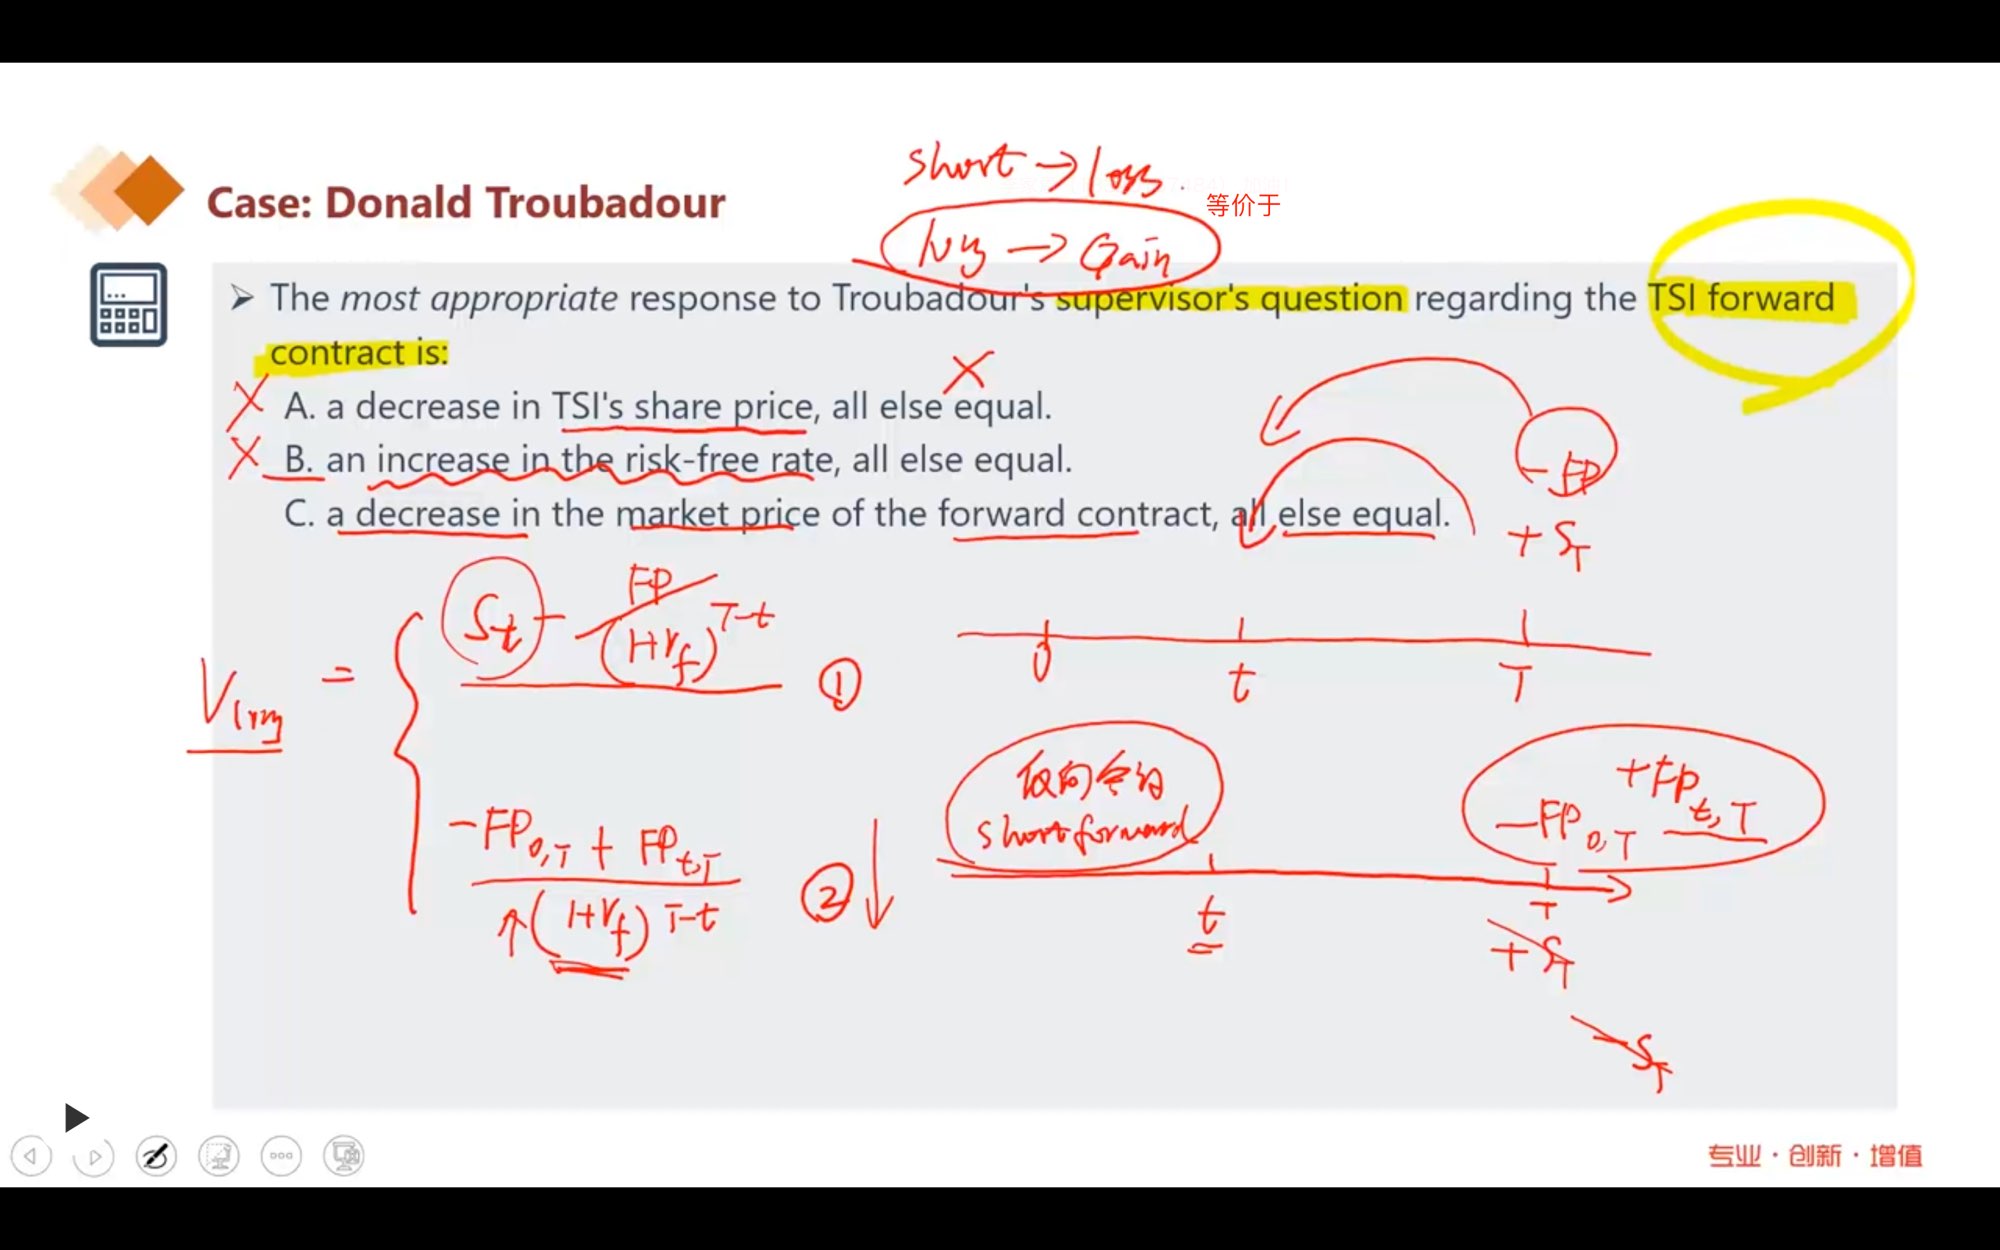 short → loss
等价于
long → Gain
Case: Donald Troubadour
➤ The most appropriate response to Troubadour's supervisor's question regarding the TSI forward
contract is:
A. a decrease in TSI's share price, all else equal.
B. an increase in the risk-free rate, all else equal.
C. a decrease in the market price of the forward contract, all else equal.
- FP
+ S_T
V_long =
S_t - FP / (1+r_f)^T-t ①
0 t T
-FP_0,T + FP_t,T
↑(1+r_f)^T-t ② ↓
反向合约
short forward
+FP_t,T
-FP_0,T
t T
+ S_T
- S_T
专业·创新·增值